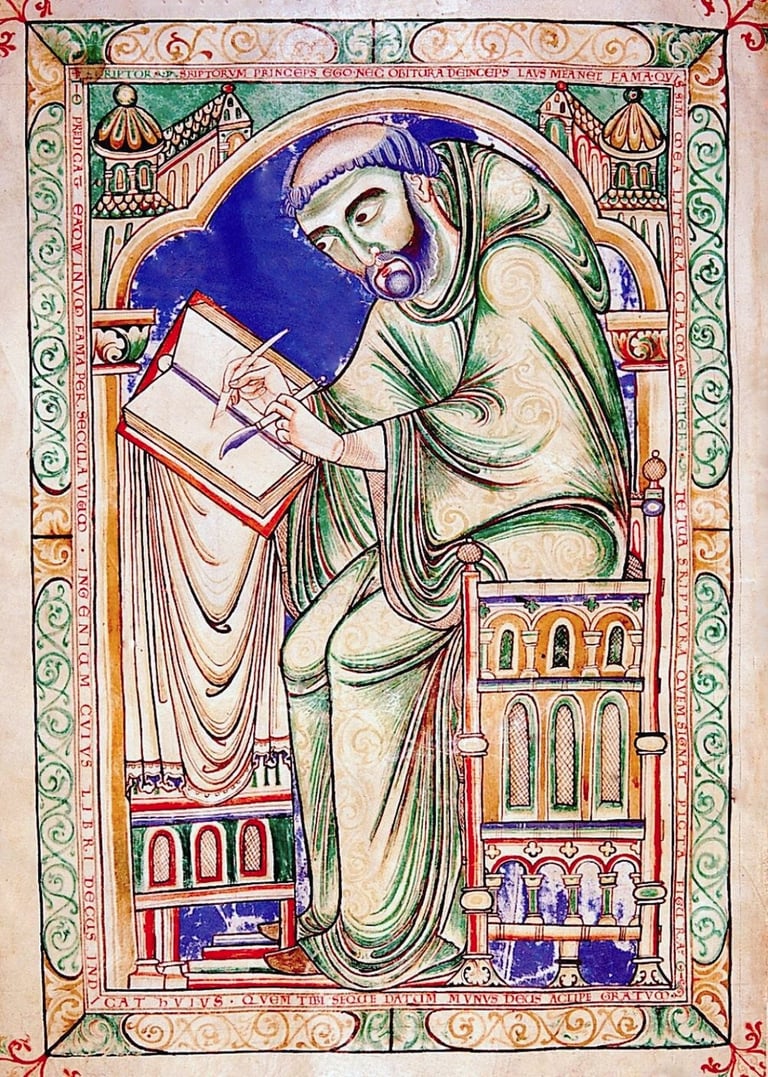 SCRIPTORVM PRINCEPS EGO·NEC OBITURA DEINCEPS LAVS MEA NEC FAMA·QVI
SIM MEA LITTERA CLAMA·LITTERA TE TUA SCRIPTURA QUEM SIGNAT PICTA FIGURA·
PREDICAT EADWINVM FAMA PER SECULA VIVUM · INGENIUM CVIVS LIBRI DECUS INDI
CAT HVIVS · QVEM TIBI SEQUE DATUM MVNUS DEUS ACCIPE GRATVM